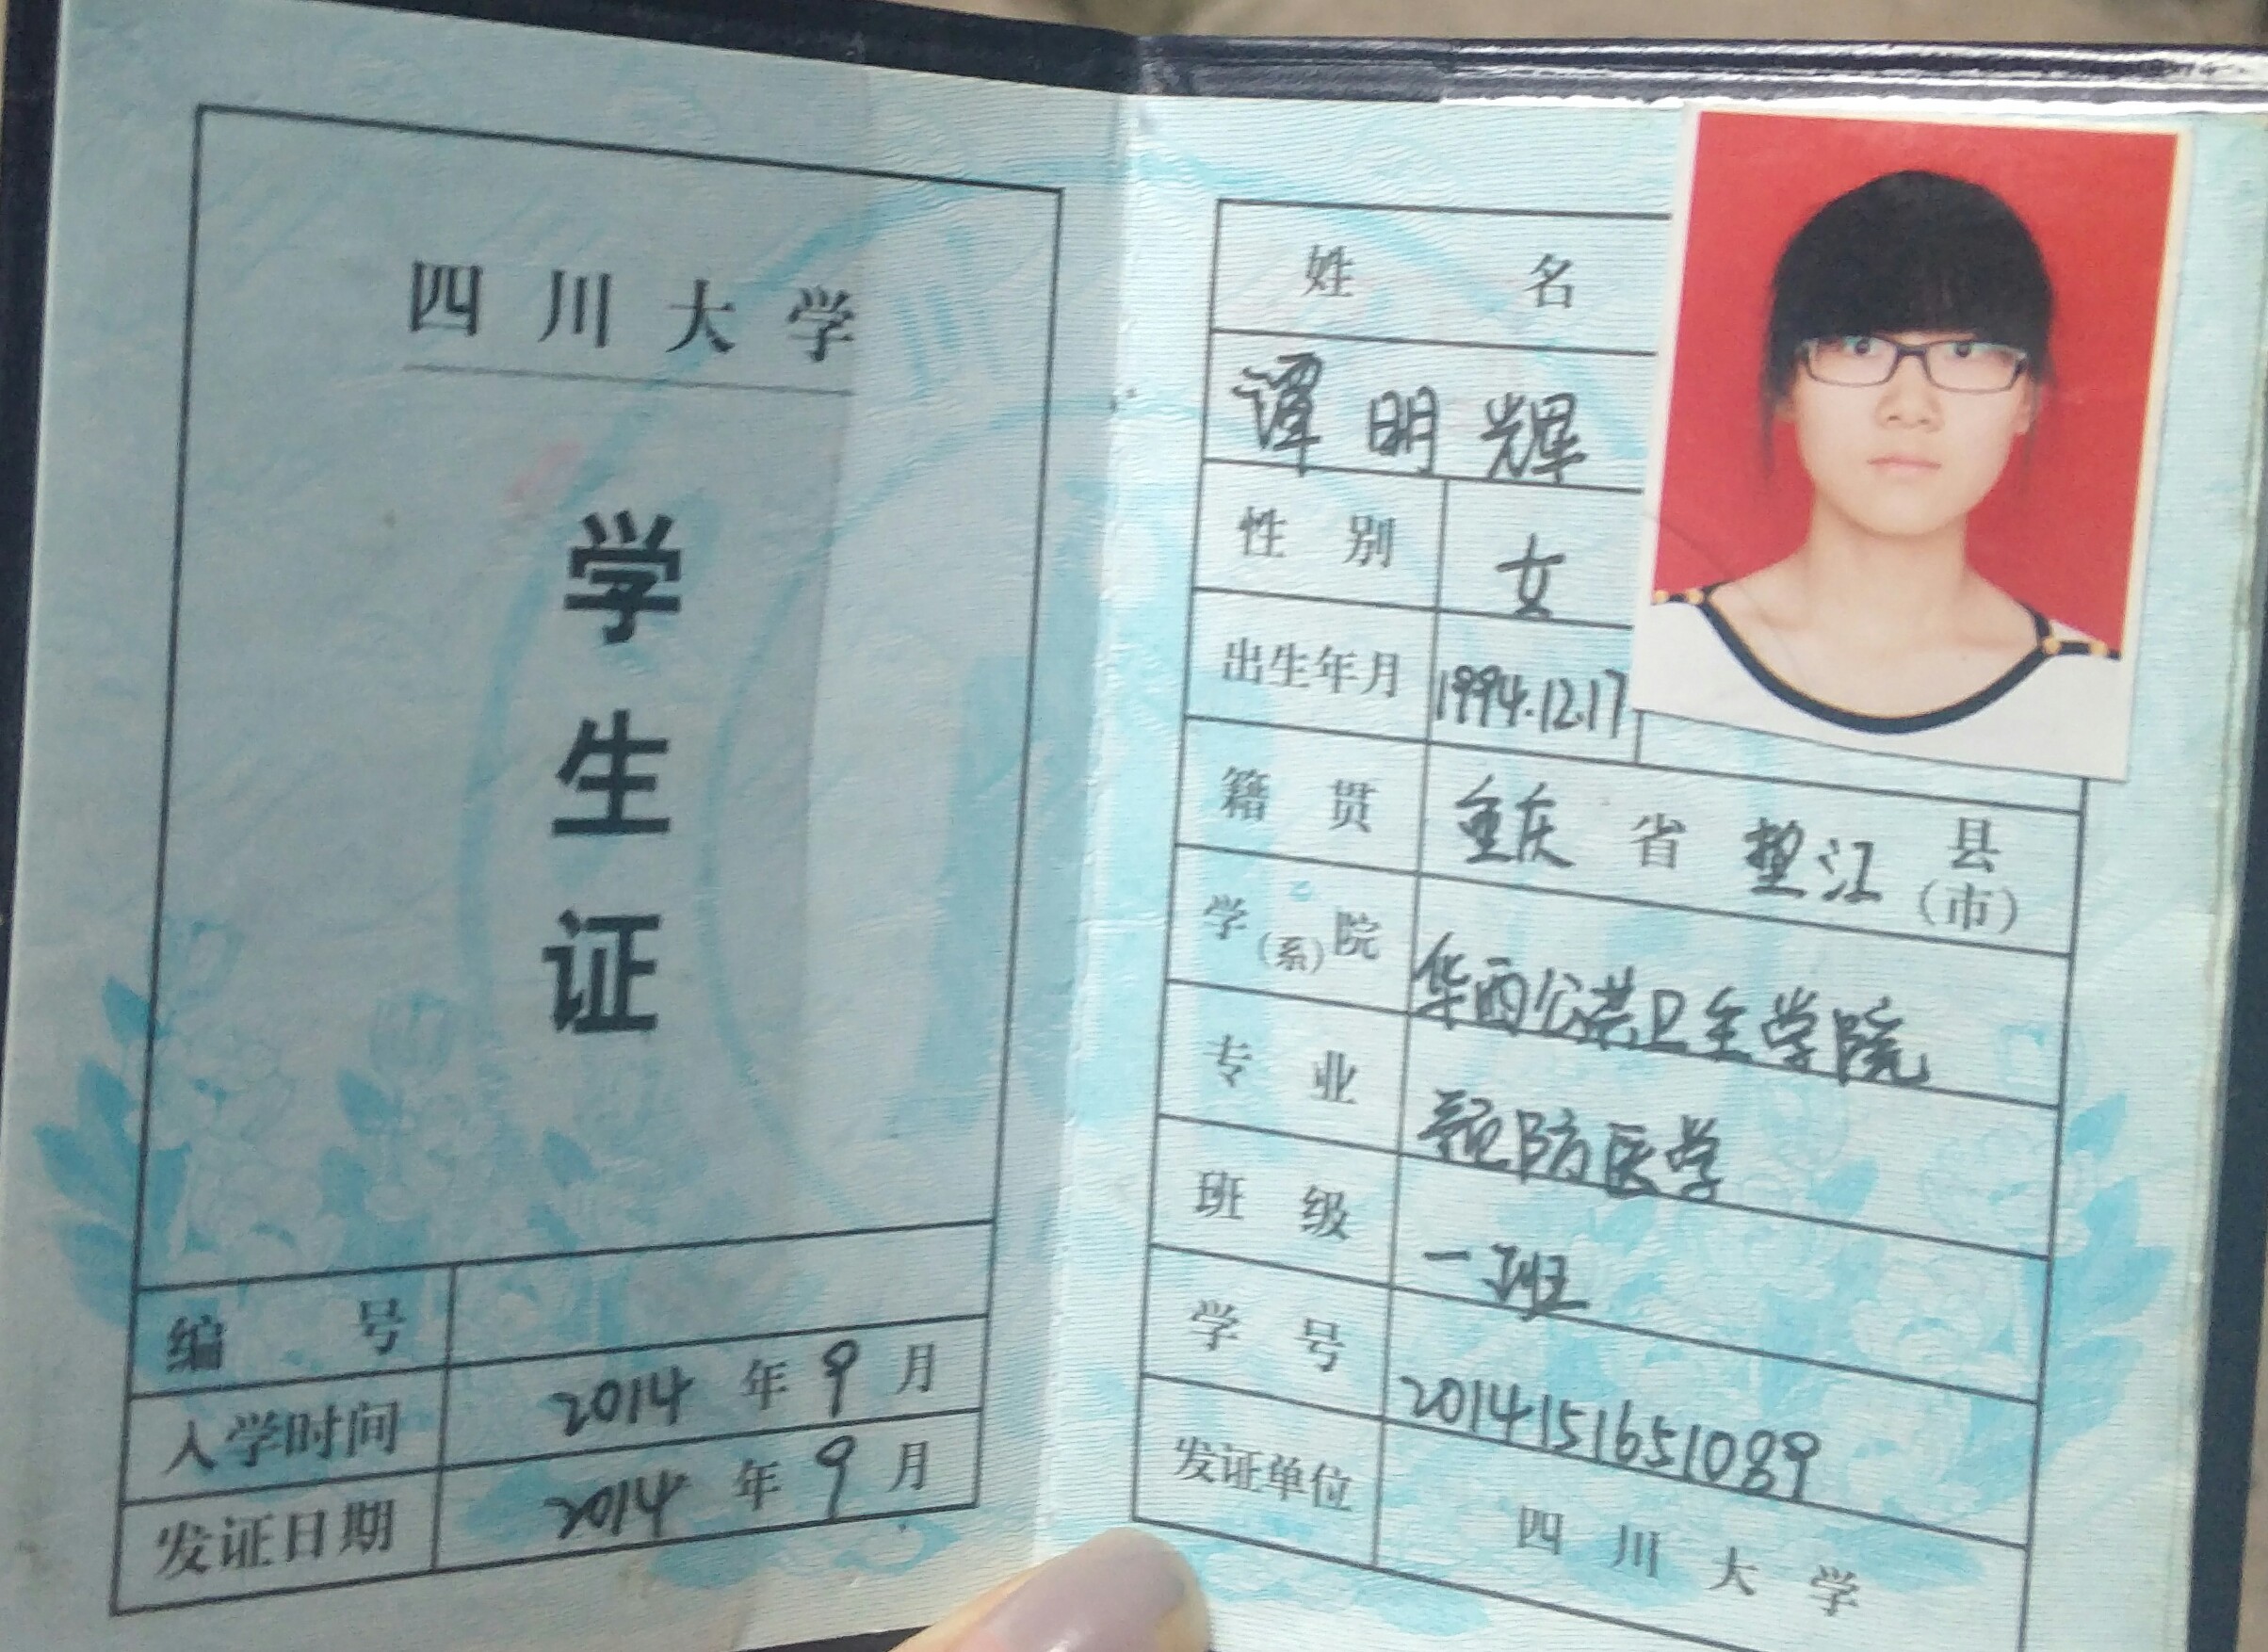 四川大学
学生证
编号
入学时间 2014 年 9 月
发证日期 2014 年 9 月
姓名
谭明辉
性别 女
出生年月 1994.12.17
籍贯 重庆 省 垫江 县(市)
学(系)院 华西公共卫生学院
专业 预防医学
班级 一班
学号 2014151651089
发证单位 四川大学